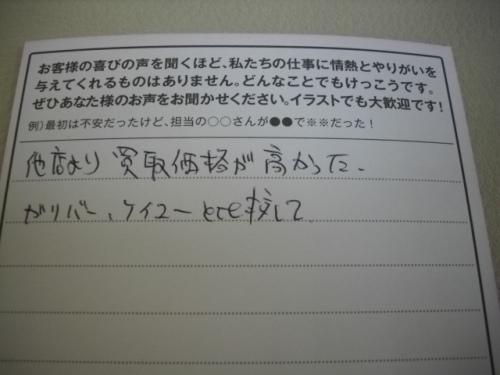 お客様の喜びの声を聞くほど、私たちの仕事に情熱とやりがいを
与えてくれるものはありません。どんなことでもけっこうです。
ぜひあなた様のお声をお聞かせください。イラストでも大歓迎です!
例)最初は不安だったけど、担当の○○さんが●●で※※だった!
他店より買取価格が高かった。
ガリバー、ケイユーと比較して